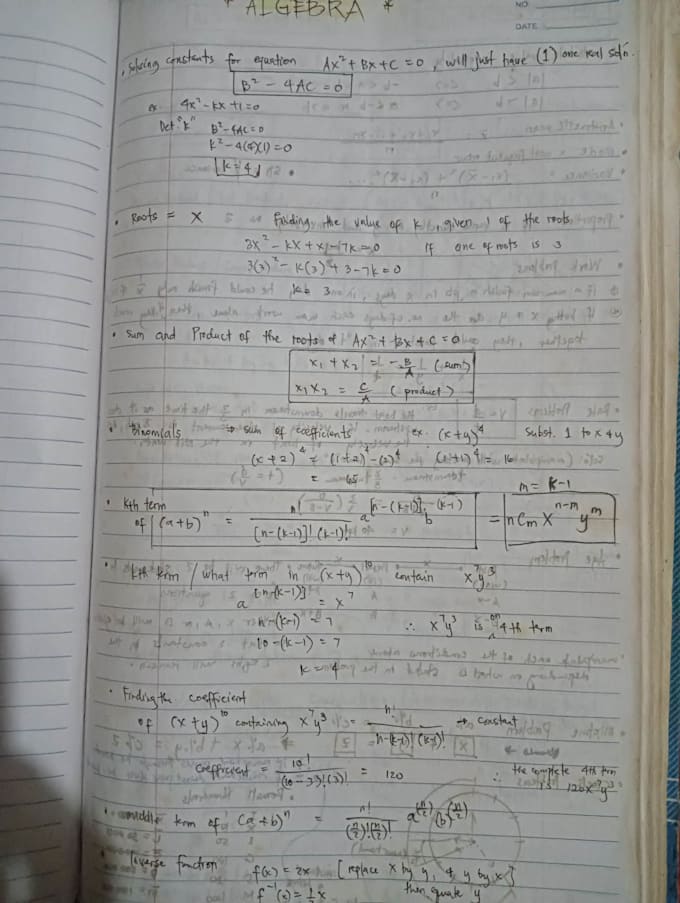 * ALGEBRA *
NO
DATE
. Solving constants for equation Ax² + Bx + C = 0, will just have (1) one real sol'n.
B² - 4AC = 0
ex. 4x² - kx + 1 = 0
Det. "k" B² - 4AC = 0
k² - 4(4)(1) = 0
k = 4
• Roots = X Finding the value of k, given 1 of the roots
3x² - kx + x - 7k = 0 If one of roots is 3
3(3)² - k(3) + 3 - 7k = 0
k = 3
• Sum and Product of the roots of Ax² + Bx + C = 0
x₁ + x₂ = - B/A (sum)
x₁x₂ = C/A (product)
• Binomials → sum of coefficients ex. (x+y)⁴ subst. 1 to x & y
(x+2)⁴ = (1+2)⁴ - (2)⁴ (1+1)⁴ = 16
= 65
m = k-1
• kth term
of (a+b)ⁿ = n! / [n-(k-1)]! (k-1)! a^[n-(k-1)] b^(k-1) = nCm x^(n-m) y^m
• kth term / what term in (x+y)¹⁰ contain x⁷y³
a^[n-(k-1)] = x⁷
n-(k-1) = 7 ∴ x⁷y³ is 4th term
10-(k-1) = 7
k = 4
• Finding the coefficient
of (x+y)¹⁰ containing x⁷y³ = n! / n-(k-1)! (k-1)! → constant
Coefficient = 10! / (10-3)! (3)! = 120 ∴ the complete 4th term
is 120x⁷y³
• middle term of (a+b)ⁿ = n! / (n/2)! (n/2)! a^(n/2) (b)^(n/2)
• Inverse function f(x) = 2x [replace x by y, & y by x]
f⁻¹(x) = 1/2 x then equate y